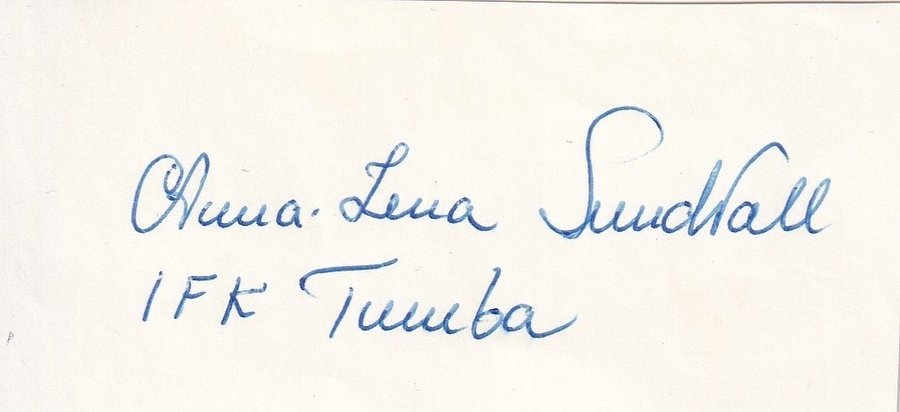 Anna-Lena Sundvall
IFK Tumba